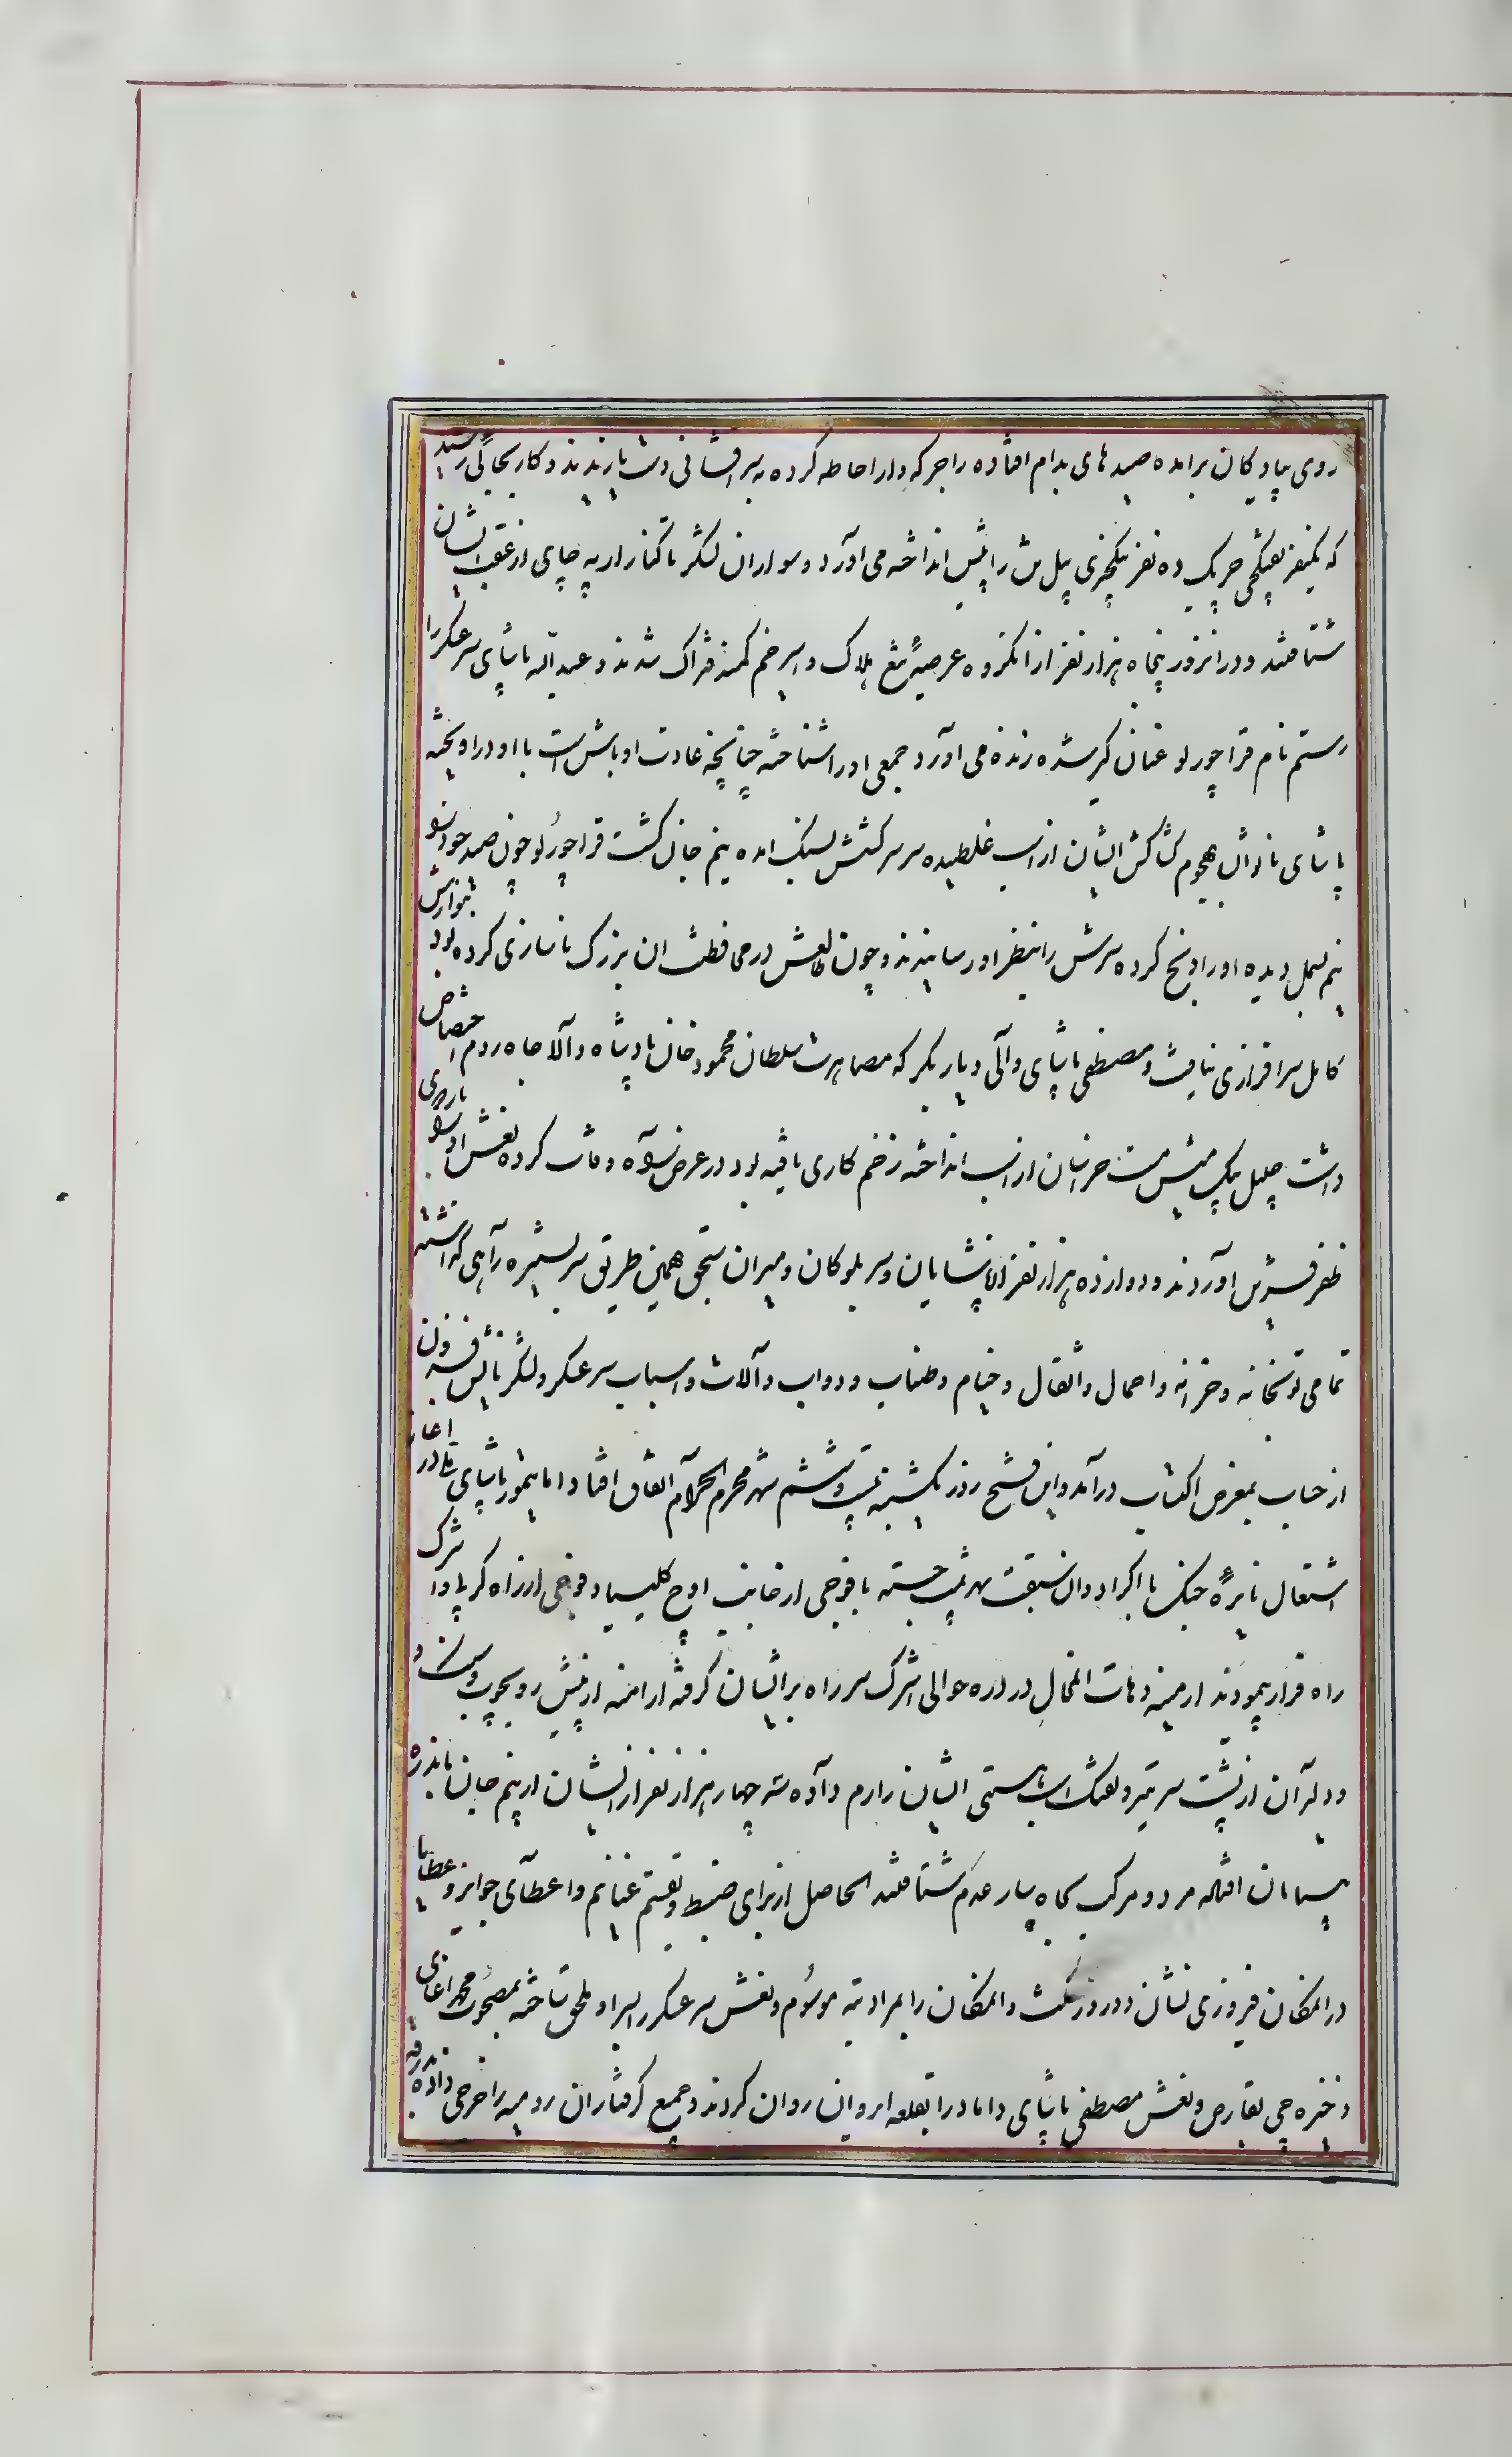 روی پیادگان برامده صیدهای بدام افتاده را جرگه وار احاطه کرده به سرافشانی دست یازیدند و کار بجائی رسید
که یکنفر تفنگچی چریک ده نفر ینکچری پیل تن را پیش انداخته می آورد و سواران لشکر تا کنار ارپه چای از عقب ایشان
شتافتند و در انروز پنجاه هزار نفر از انگروه عرصهٔ تیغ هلاک و اسیر خم کمند فتراک شدند و عبداللّه پاشای سرعسکر را
رستم نام قراچورلو عنان گیر شده زنده می آورد جمعی او را شناخته چنانچه عادت اوباش است با او دراویخته
پاشای ناتوان بهجوم کشاکش ایشان از اسب غلطیده سر سرکشش بسنگ امده نیم جان گشت قراچورلو چون صید خود را
نیم بسمل دیده او را ذبح کرده سرش را بنظر اورسانیدند و چون طالعش در محافظت ان بزرگ ناسازی کرده بود بنوازش
کامل سرافرازی نیافت و مصطفی پاشای والی دیاربکر که مصاهرت سلطان محمود خان پادشاه والا جاه روم اختصاص
داشت جلیل بیک میش مست خراسان از اسب انداخته زخم کاری یافته بود در عرض راه وفات کرده نعش او را باردوی
ظفر قرین آوردند و دوازده هزار نفر از پاشایان و سربلوکان و میران سنجق همین طریق سر بسر راهی گذاشته
تمامی توپخانه و خزانه و احمال و اثقال و خیام و طناب و دواب و آلات و اسباب سرعسکر و لشکریانش افزون
از حساب بمعرض اکتساب درآمد و این فتح روز یکشنبه بیست و ششم شهر محرم الحرام اتفاق افتاد اما تیمور پاشای در اغاز
اشتعال نایرهٔ جنک با اکراد وان سبقت بهزیمت جسته با فوجی از جانب اوچ کلیسیا و فوجی از راه اشترک
راه فرار پیمودند ارمنیه دهات المحال در دره حوالی اشترک سر راه بر ایشان گرفته ارامنه از پیش رو بچوب و سنک و
و دلیران از پشت سر بتیر و تفنک اساس هستی ایشان را رم داده سه چهار هزار نفر از ایشان از بیم جان بدره
بی پایان افتاده مرد و مرکب پیاده سپار عدم شتافتند الحاصل از برای ضبط و تقسیم غنایم و اعطای جوایز و عطایا
در المکان فیروزی نشان دو روز مکث و المکان را بمراد تپه موسوم و نعش سرعسکر را بسر او ملحق ساخته بمصحوب محمد اغای
ذخیره چی بقارص و نعش مصطفی پاشای داماد را بقلعه ایروان روان کردند و جمیع گرفتاران رومیه را خرجی داده